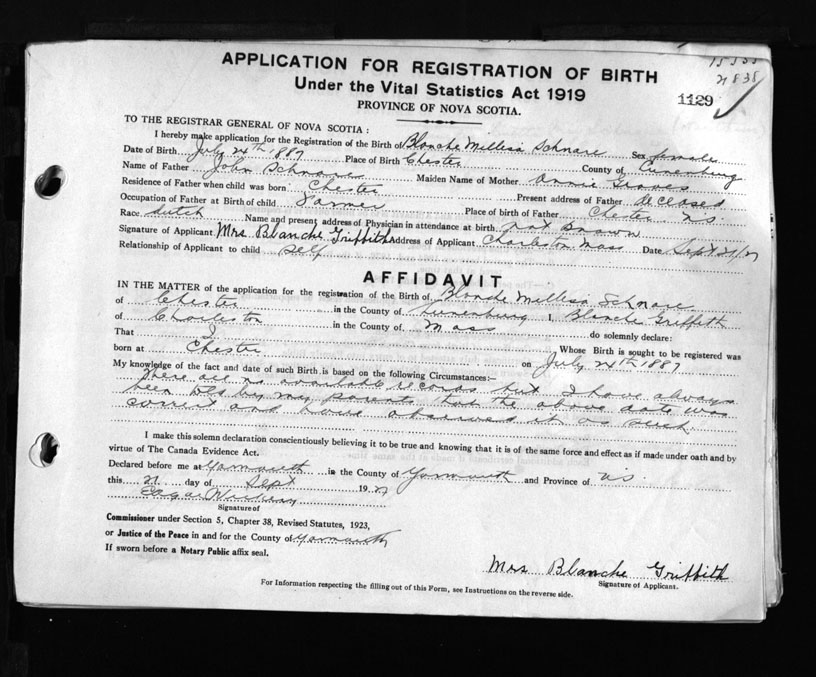 15535
21838
1129
APPLICATION FOR REGISTRATION OF BIRTH
Under the Vital Statistics Act 1919
PROVINCE OF NOVA SCOTIA.
TO THE REGISTRAR GENERAL OF NOVA SCOTIA :
I hereby make application for the Registration of the Birth of Blanche Millisa Schnare Sex female
Date of Birth July 24th 1887 Place of Birth Chester County of Lunenburg
Name of Father John Schnare Maiden Name of Mother Annie Graves
Residence of Father when child was born Chester Present address of Father deceased
Occupation of Father at Birth of child Farmer Place of birth of Father Chester N.S.
Race Dutch Name and present address of Physician in attendance at birth not known
Signature of Applicant Mrs Blanche Griffith Address of Applicant Charleston Mass Date Sept 21/27
Relationship of Applicant to child self
AFFIDAVIT
IN THE MATTER of the application for the registration of the Birth of Blanche Millisa Schnare
of Chester in the County of Lunenburg I, Blanche Griffith
of Charleston in the County of Mass do solemnly declare:
That I Whose Birth is sought to be registered was
born at Chester on July 24th 1887
My knowledge of the fact and date of such Birth is based on the following Circumstances:—
There are no available records but I have always
been told by my parents that the above date was
correct and have observed it as such
I make this solemn declaration conscientiously believing it to be true and knowing that it is of the same force and effect as if made under oath and by
virtue of The Canada Evidence Act.
Declared before me at Yarmouth in the County of Yarmouth and Province of N.S.
this 21 day of Sept 1927
Signature of
Commissioner under Section 5, Chapter 38, Revised Statutes, 1923,
or Justice of the Peace in and for the County of Yarmouth
If sworn before a Notary Public affix seal.
Mrs Blanche Griffith
Signature of Applicant.
For Information respecting the filling out of this Form, see Instructions on the reverse side.